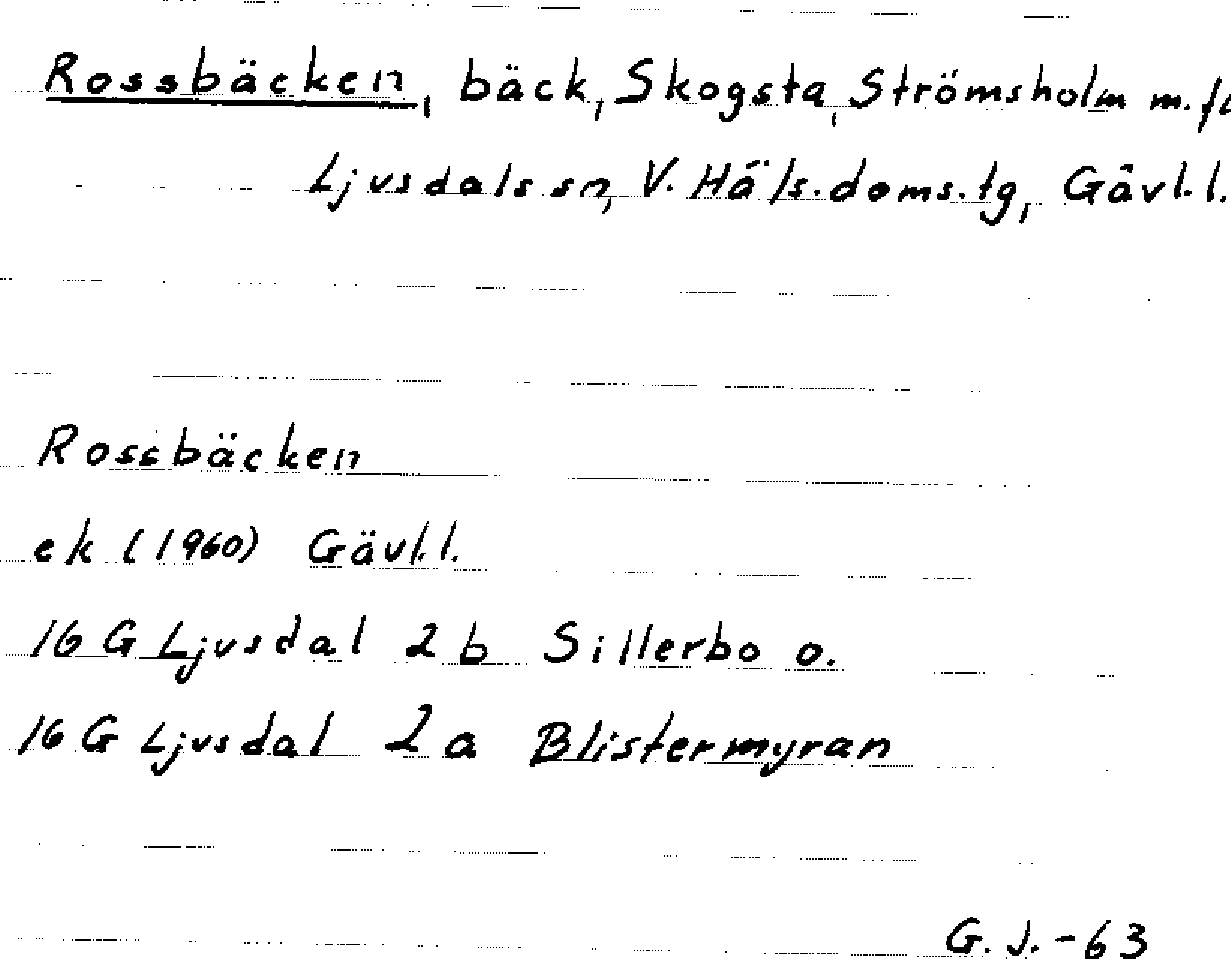 Rossbäcken, bäck, Skogsta, Strömsholm m.fl
Ljusdals sn, V. Häls. doms. tg, Gävl. l.
Rossbäcken
ek (1960) Gävl. l.
16 G Ljusdal 2 b Sillerbo o.
16 G Ljusdal 2 a Blistermyran
G. J. -63